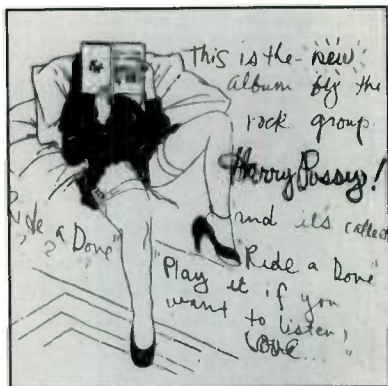 This is the new
album by the
rock group
Harry Pussy!
and its called
"Ride a Dove"
"Play it if you
want to listen,
Ride a Dove"
? ?